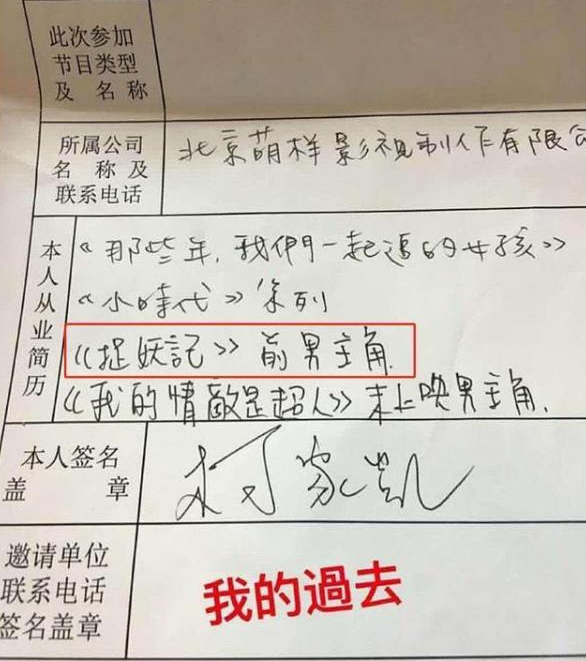 此次参加
节目类型
及名称
所属公司
名称及
联系电话
北京萌样影视制作有限公
本人从业简历
《那些年,我們一起追的女孩》
《小時代》系列
《捉妖記》前男主角
《我的情敵是超人》未上映男主角.
本人签名
盖章
柯家凯
邀请单位
联系电话
签名盖章
我的過去